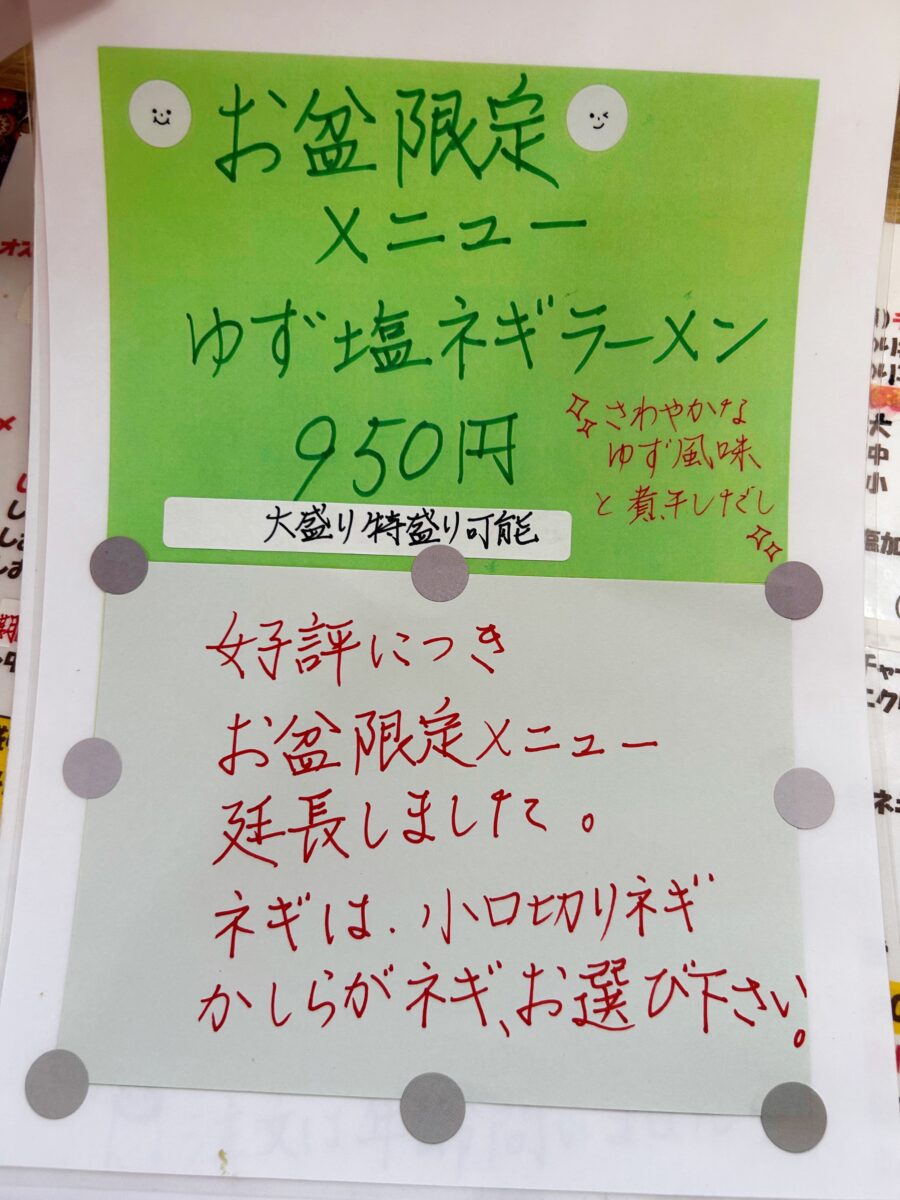 お盆限定
メニュー
ゆず塩ネギラーメン
950円
さわやかな
ゆず風味
と煮干しだし
大盛り特盛り可能
好評につき
お盆限定メニュー
延長しました。
ネギは、小口切りネギ
かしらがネギ、お選び下さい。
大
中
小